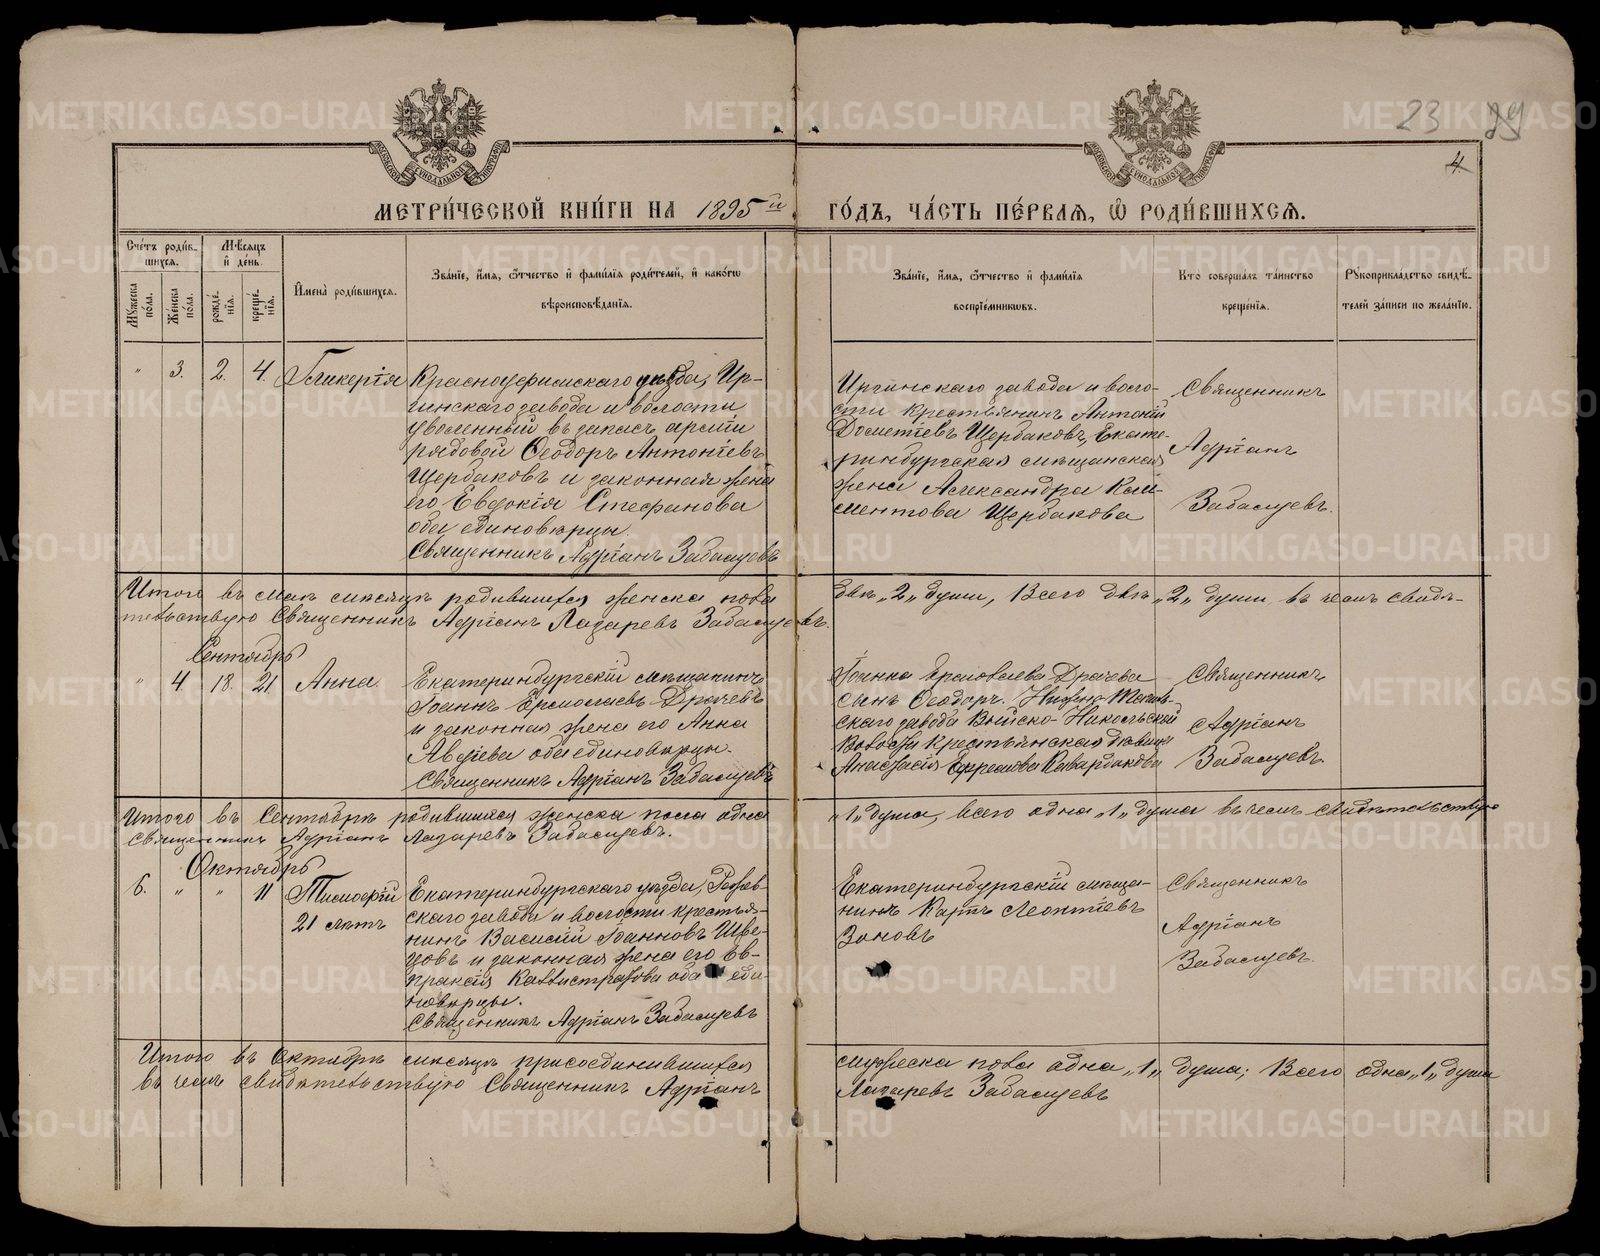 23 29
4
МОСКОВСКОЙ СУНОДАЛЬНОЙ ТИПОГРАФІИ
МОСКОВСКОЙ СУНОДАЛЬНОЙ ТИПОГРАФІИ
МЕТРИ́ЧЕСКОЙ КНИ́ГИ НА 1895й ГО́ДЪ, ЧА́СТЬ ПЕ́РВАЯ, Ѡ РОДИ́ВШИХСЯ.
Сче́тъ роди́в-
шихся.
Мꙋ́жеска по́ла.
Же́нска по́ла.
Мѣ́сяцъ
и҆ де́нь.
рожде́-
нїя.
креще́-
нїя.
И҆мена̀ роди́вшихся.
Зва́нїе, и҆́мя, ѻ҆́тчество и҆ фами́лїя роди́телей, и҆ како́гѡ
вѣроисповѣ́данїя.
Зва́нїе, и҆́мя, ѻ҆́тчество и҆ фами́лїя
воспрїе́мникѡвъ.
Кто̀ соверша́лъ та́инство
креще́нїя.
Рꙋкоприкла́дство свидѣ́-
телей за́писи по жела́нїю.
" 3. 2. 4. Гликерія
Красноуфимскаго уѣзда, Ир-
гинскаго завода и волости
уволенный въ запасъ арміи
рядовой Ѳеодоръ Антоніевъ
Щербаковъ и законная жена
его Евдокія Стефанова
оба единовѣрцы.
Священникъ Адріанъ Забалуевъ
Иргинскаго завода и воло-
сти крестьянинъ Антоній
Дометіевъ Щербаковъ, Екате-
ринбургская мѣщанская
жена Александра Кли-
ментова Щербакова
Священникъ
Адріанъ
Забалуевъ.
Итого въ маѣ мѣсяцѣ родившихся женска пола двѣ „2„ души, Всего двѣ „2„ души, въ чемъ свидѣ-
тельствую Священникъ Адріанъ Лазаревъ Забалуевъ.
Сентябрь
" 4. 18. 21 Анна
Екатеринбургскій мѣщанинъ
Іоаннъ Ермолаевъ Драчевъ
и законная жена его Анна
Авдіева оба единовѣрцы.
Священникъ Адріанъ Забалуевъ
Іоанна Ермолаева Драчева
сынъ Ѳеодоръ. Нижне-Тагиль-
скаго завода Выйско-Никольской
волости крестьянская дѣвица
Анастасія Ефремова Кавардакова
Священникъ
Адріанъ
Забалуевъ.
Итого въ Сентябрѣ родившихся женска пола одна „1„ душа, всего одна „1„ душа въ чемъ свидѣтельствую
священникъ Адріанъ Лазаревъ Забалуевъ.
Октябрь
6. " " 11 Тимоѳей
21 лѣтъ
Екатеринбургскаго уѣзда, Режев-
скаго завода и волости крестья-
нинъ Василій Іоанновъ Шве-
цовъ и законная жена его Ев-
праксія Каллистратова оба еди
новѣрцы.
Священникъ Адріанъ Забалуевъ
Екатеринбургскій мѣща-
нинъ Карпъ Леонтіевъ
Зоновъ
Священникъ
Адріанъ
Забалуевъ.
Итого въ Октябрѣ мѣсяцѣ присоединившихся мужеска пола одна „1„ душа; Всего одна „1„ душа
въ чемъ свидѣтельствую Священникъ Адріанъ Лазаревъ Забалуевъ
METRIKI.GASO-URAL.RU